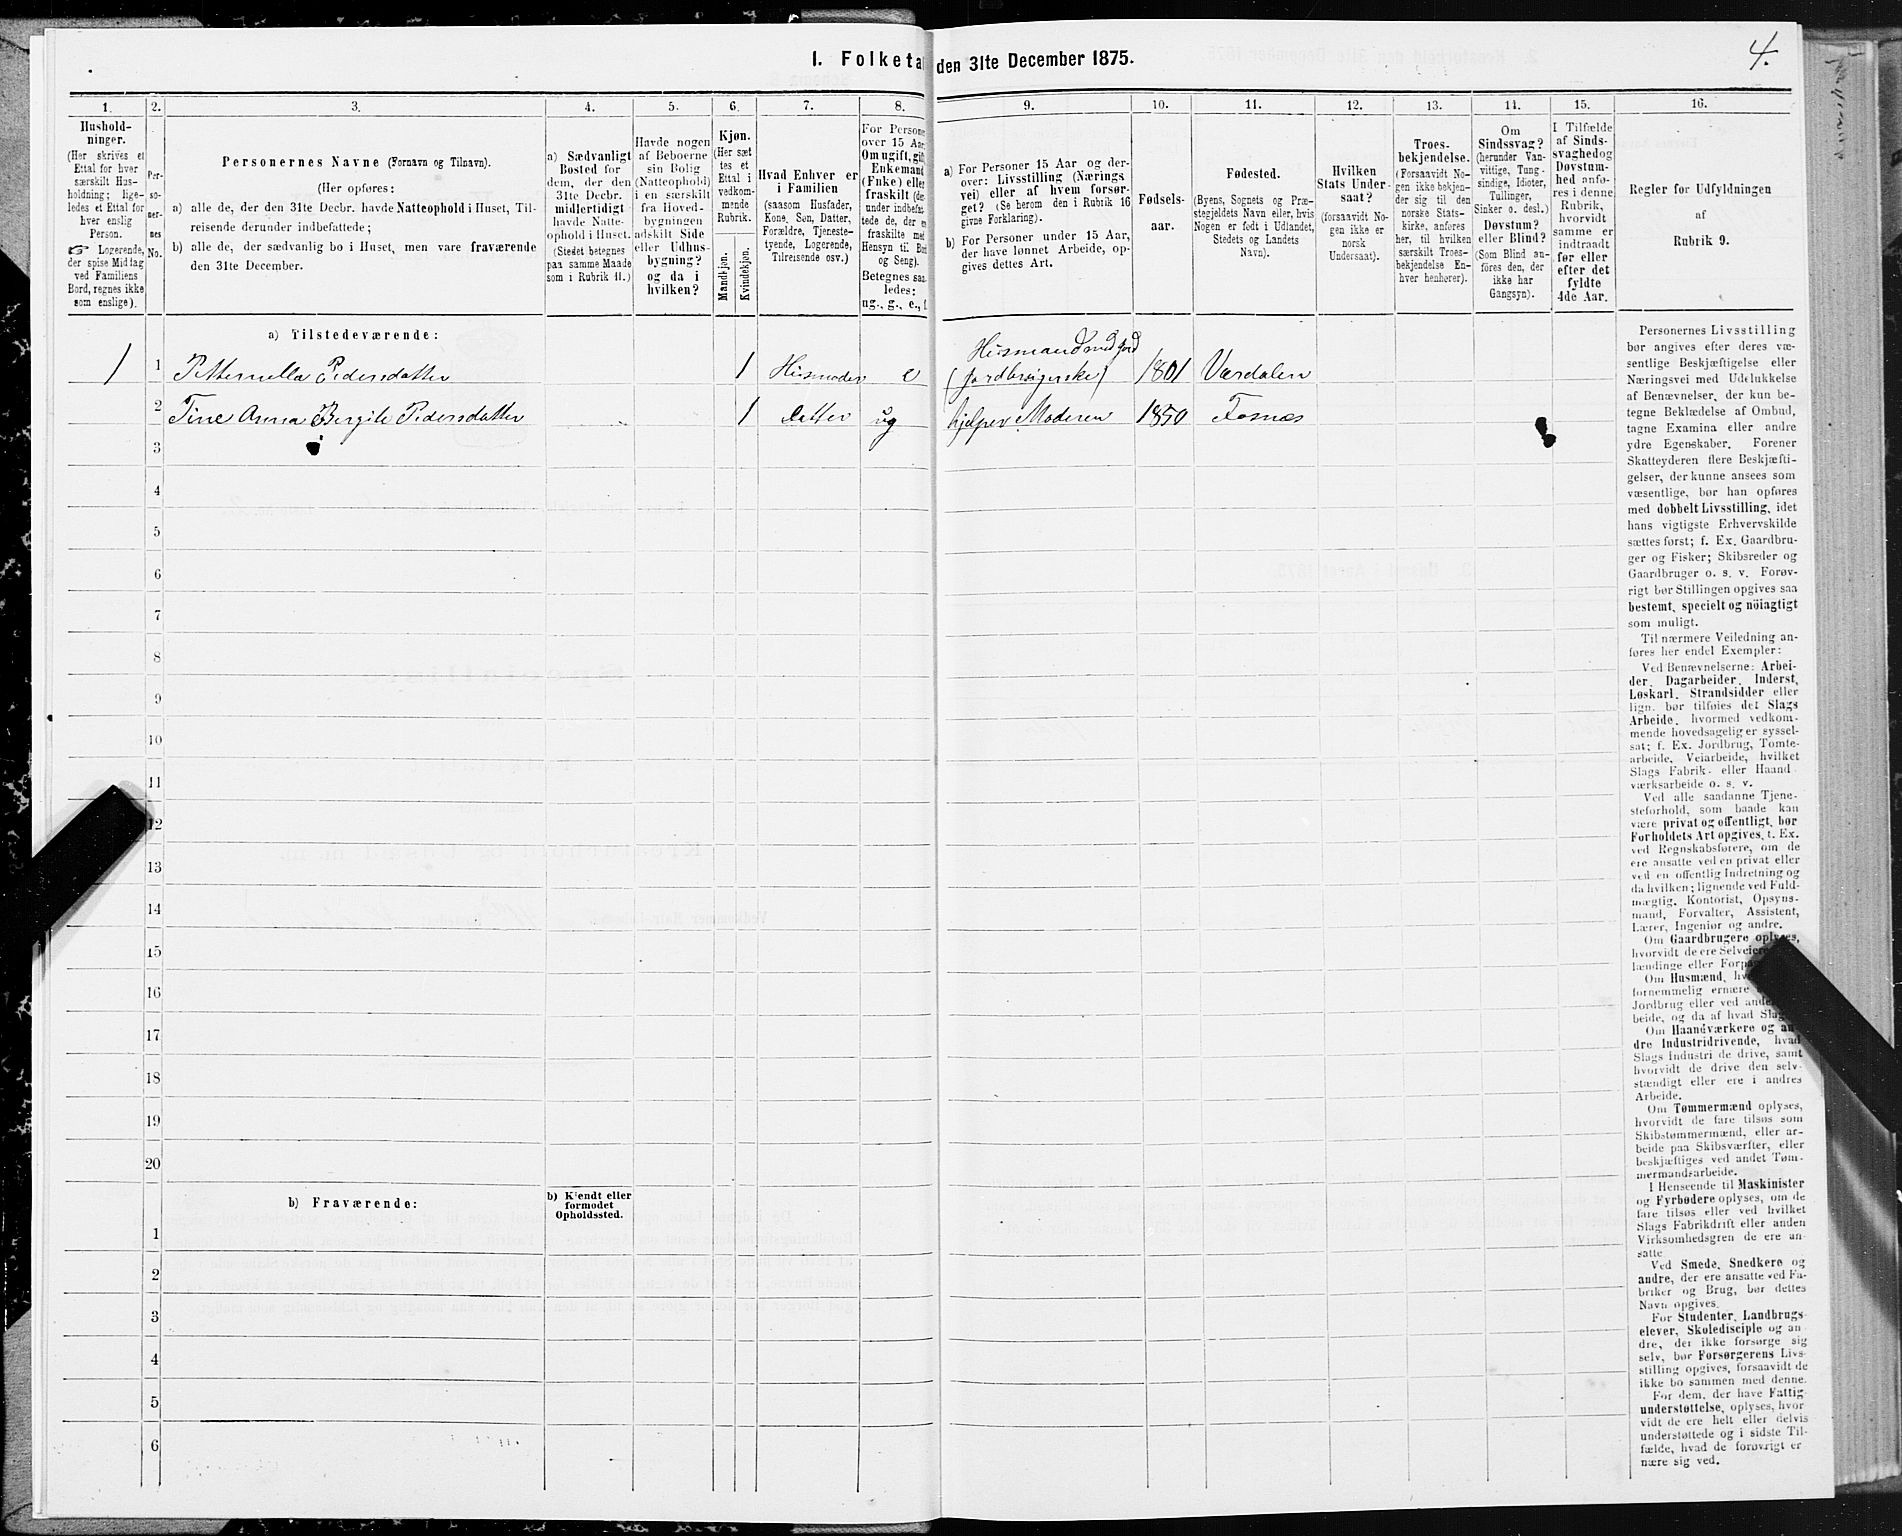 4.
1. Folketa den 31te December 1875.
1. 2. 3. 4. 5. 6. 7. 8. 9. 10. 11. 12. 13. 14. 15. 16.
Hushold-
ninger.
(Her skrives et
Ettal for hver
særskilt Hus-
holdning; lige-
ledes et Ettal for
hver enslig
Person.
☞ Logerende,
der spise Middag
ved Familiens
Bord, regnes ikke
som enslige).
Per-
so-
ner-
nes
No.
Personernes Navne (Fornavn og Tilnavn).
(Her opføres:
a) alle de, der den 31te Decbr. havde Natteophold i Huset, Til-
reisende derunder indbefattede;
b) alle de, der sædvanlig bo i Huset, men vare fraværende
den 31te December.
a) Sædvanligt
Bosted for
dem, der den
31te Decbr.
midlertidigt
havde Natte-
ophold i Huset.
(Stedet betegnes
paa samme Maade
som i Rubrik 11.)
Havde nogen
af Beboerne
sin Bolig
(Natteophold)
i en særskilt
fra Hoved-
bygningen
adskilt Side
eller Udhus-
bygning?
og da i
hvilken?
Kjøn.
(Her sæt
tes et
Ettal i
vedkom-
mende
Rubrik.
Mandkjøn.
Kvindekjøn.
Hvad Enhver er
i Familien
(saasom Husfader,
Kone, Søn, Datter,
Forældre, Tjeneste-
tyende, Logerende,
Tilreisende osv.)
For Persone
over 15 Aar
Om ugift, gift
Enkemand
(Enke) eller
fraskilt (de
under indbefat
tede de, der e
fraskilte med
Hensyn til Bo
og Seng).
Betegnes saa
ledes:
ug., g., e., f
a) For Personer 15 Aar og der-
over: Livsstilling (Nærings
vei) eller af hvem forsør-
get? (Se herom den i Rubrik 16
givne Forklaring).
b) For Personer under 15 Aar,
der have lønnet Arbeide, op-
gives dettes Art.
Fødsels-
aar.
Fødested.
(Byens, Sognets og Præ-
stegjeldets Navn eller, hvis
Nogen er født i Udlandet,
Stedets og Landets
Navn).
Hvilken
Stats Under-
saat?
(forsaavidt No-
gen ikke er
norsk
Undersaat).
Troes-
bekjendelse.
(Forsaavidt No-
gen ikke bekjen-
der sig til den
norske Stats-
kirke, anføres
her, til hvilken
særskilt Troes-
bekjendelse En-
hver henhører).
Om
Sindssvag?
(herunder Van-
vittige, Tung-
sindige, Idioter,
Tullinger,
Sinker o. desl.)
Døvstum?
eller Blind?
(Som Blind an-
føres den, der
ikke har
Gangsyn).
I Tilfælde
af Sinds-
svaghed og
Døvstum-
hed anfø-
res i denne
Rubrik,
hvorvidt
samme er
indtraadt
før eller
efter det
fyldte
4de Aar.
Regler for Udfyldningen
af
Rubrik 9.
a) Tilstedeværende:
1 1 Petternella Pedersdatter 1 Husmoder e Husmand med Jord (Jordbrugerske) 1801 Værdalen
2 Tine Anna Bergite Pedersdatter 1 Datter ug hjelper Moderen 1850 Fosnæs
3
4
5
6
7
8
9
10
11
12
13
14
15
16
17
18
19
20
b) Fraværende:
b) Kjendt eller
formodet
Opholdssted.
1
2
3
4
5
6
Personernes Livsstilling
bør angives efter deres væ-
sentlige Beskjæftigelse eller
Næringsvei med Udelukkelse
af Benævnelser, der kun be-
tegne Beklædelse af Ombud,
tagne Examina eller andre
ydre Egenskaber. Forener
Skatteyderen flere Beskjæfti-
gelser, der kunne ansees som
væsentlige, bør han opføres
med dobbelt Livsstilling, idet
hans vigtigste Erhvervskilde
sættes først; f. Ex. Gaardbru-
ger og Fisker; Skibsreder og
Gaardbruger o. s. v. Forøv-
rigt bør Stillingen opgives saa
bestemt, specielt og nöiagtigt
som muligt.
Til nærmere Veiledning an-
føres her endel Exempler:
Ved Benævnelserne: Arbei-
der, Dagarbeider, Inderst,
Løskarl, Strandsidder eller
lign. bør tilføies det Slags
Arbeide, hvormed vedkom-
mende hovedsagelig er syssel-
sat; f. Ex. Jordbrug, Tomte-
arbeide, Veiarbeide, hvilket
Slags Fabrik- eller Haand-
værksarbeide o. s. v.
Ved alle saadanne Tjene-
steforhold, som baade kan
være privat og offentligt, bør
Forholdets Art opgives, t. Ex.
ved Regnskabsførere, om de
ere ansatte ved en privat eller
ved en offentlig Indretning og
da hvilken; lignende ved Fuld-
mægtig, Kontorist, Opsyns-
mand, Forvalter, Assistent,
Lærer, Ingeniør og andre.
Om Gaardbrugere oplyses,
hvorvidt de ere Selveiere,
lændinge eller
Om Husmænd,
fornemmelig ernære
Jordbrug eller ved
beide, og da af hvad Slags
Om Haandværkere og an-
dre Industridrivende, hvad
Slags Industri de drive, samt
hvorvidt de drive den selv-
stændigt eller ere i andres
Arbeide.
Om Tømmermænd oplyses,
hvorvidt de fare tilsøs som
Skibstømmermænd, eller ar-
beide paa Skibsværfter, eller
beskjæftiges ved andet Tøm-
mermandsarbeide.
I Henseende til Maskinister
og Fyrbødere oplyses, om de
fare tilsøs eller ved hvilket
Slags Fabrikdrift eller anden
Virksomhedsgren de ere an-
satte
Ved Smede, Snedkere og
andre, der ere ansatte ved Fa-
briker og Brug, bør dettes
Navn opgives.
For Studenter, Landbrugs-
elever, Skoledisciple og an-
dre, der ikke forsørge sig
selv, bør Forsørgerens Livs-
stilling opgives, forsaavidt de
ikke bo sammen med denne.
For dem, der have Fattig-
understøttelse, oplyses, hvor-
vidt de ere helt eller delvis
understøttede og i sidste Til-
fælde, hvad de forøvrigt er
nære sig ved.